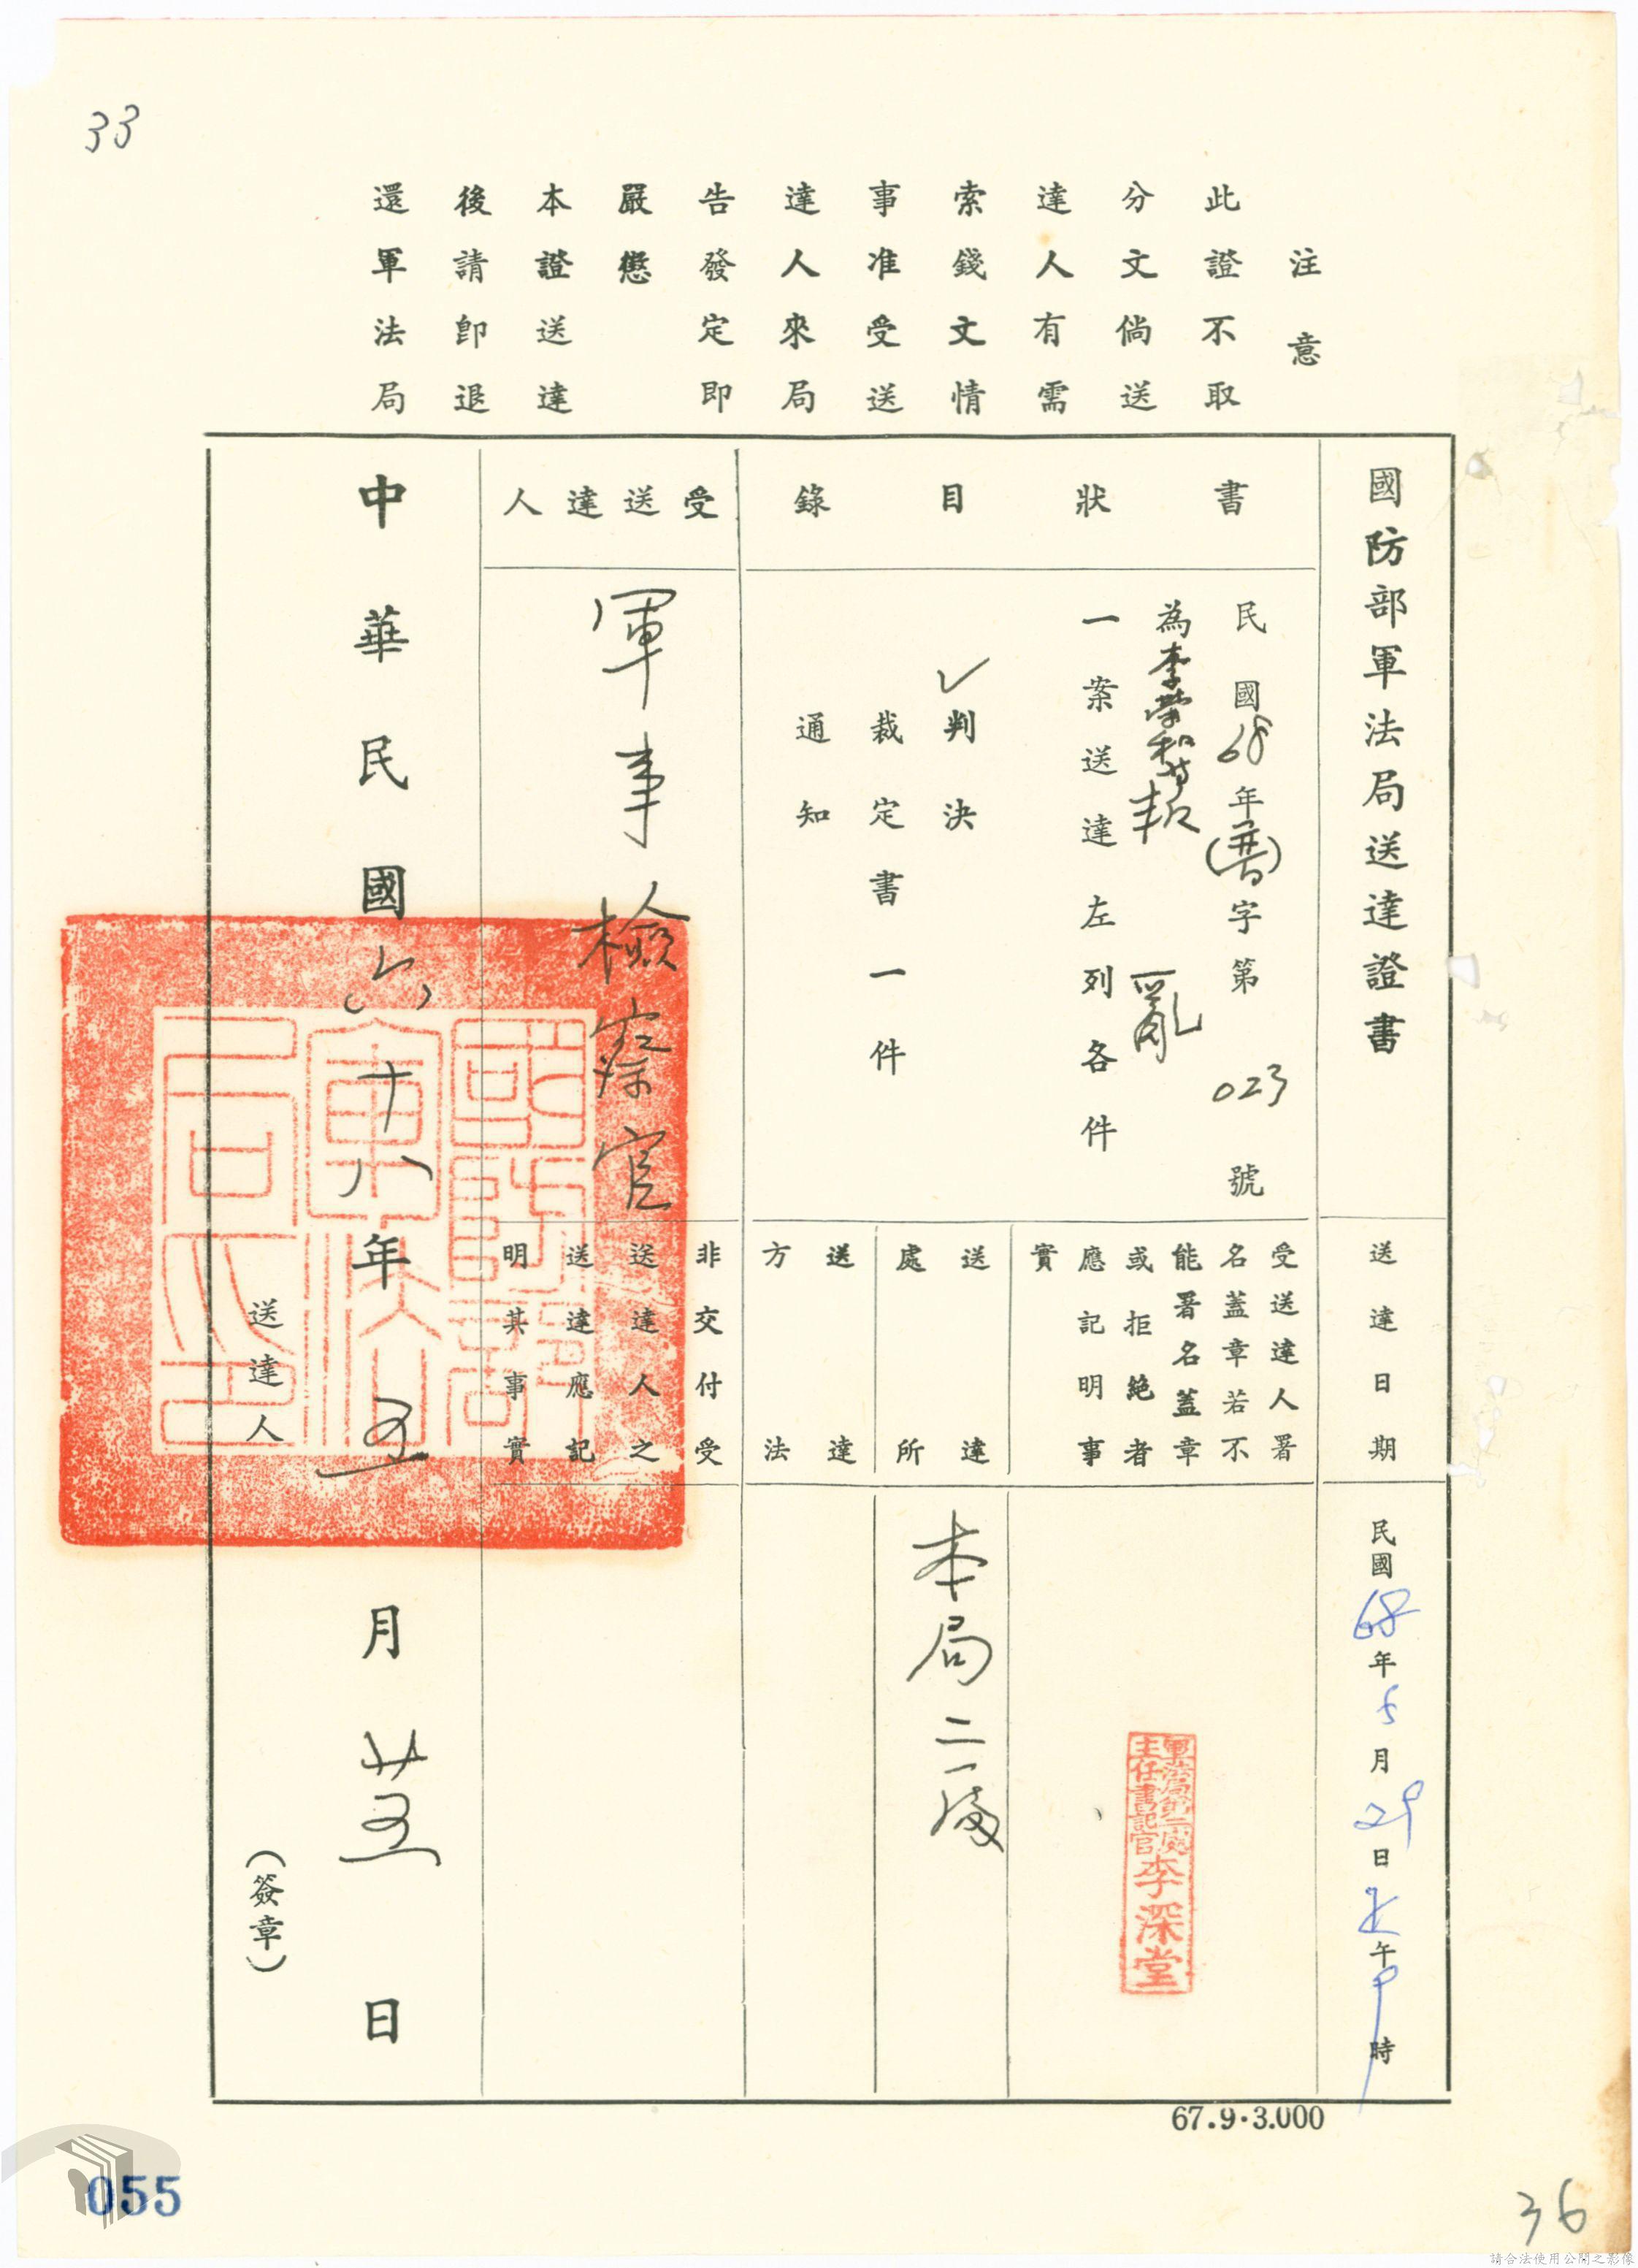 33
注意
此證不取
分文倘送
達人有需
索錢文情
事准受送
達人來局
告發定即
嚴懲
本證送達
後請卽退
還軍法局
國防部軍法局送達證書
送達日期
民國68年5月29日上午9時
書狀目錄
民國68年(普)字第023號
為李榮和等叛亂
一案送達左列各件
✓判決
裁定書一件
通知
受送達人署
名蓋章若不
能署名蓋章
或拒絶者
應記明事
實
軍法局第二處
主任書記官李深堂
送達
處所
本局二處
送達
方法
受送達人
軍事檢察官
非交付受
送達人之
送達應記
明其事實
中華民國六十八年五月廿五日
國防部
軍法局
局之印
送達人
(簽章)
67.9.3.000
055
36
請合法使用公開之影像